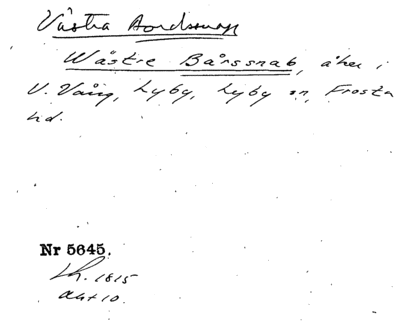 Västra
Wästre Bårssnab, åker i
V. Vång, Lyby, Lyby sn, Frosta
hd.
Nr 5645.
1815
akt 10.